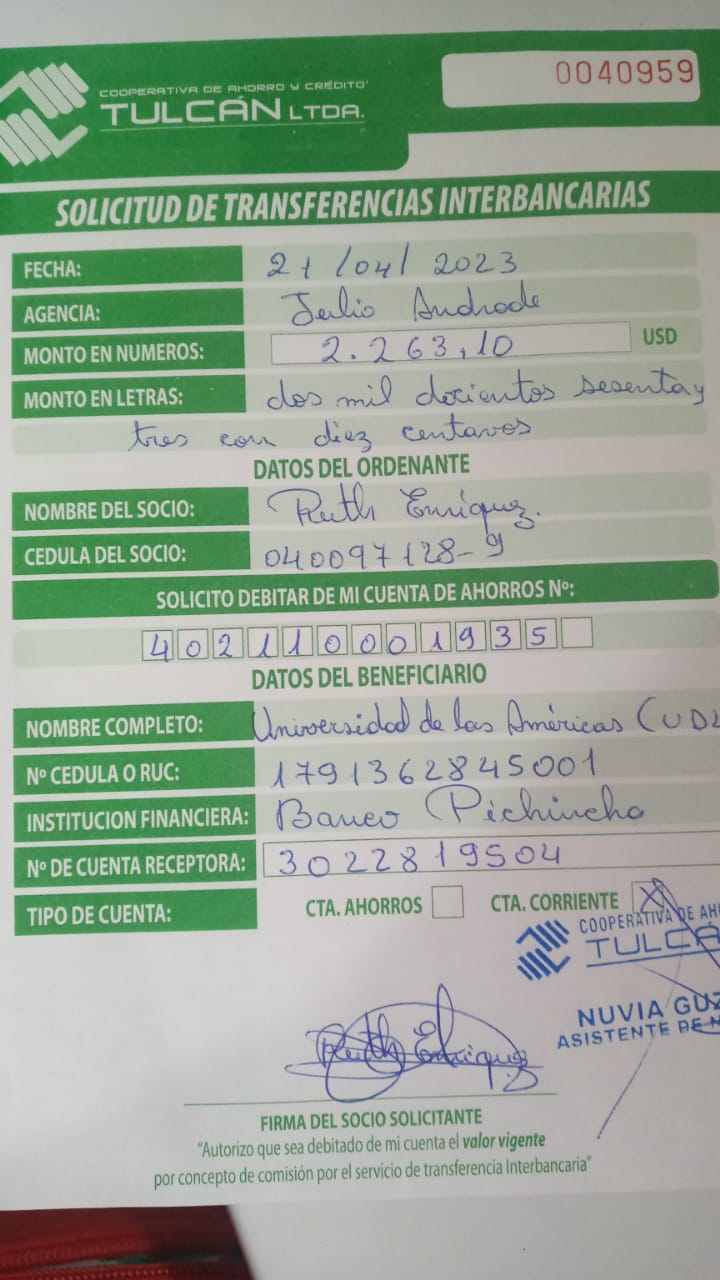 COOPERATIVA DE AHORRO Y CRÉDITO
TULCÁN LTDA.
0040959
SOLICITUD DE TRANSFERENCIAS INTERBANCARIAS
FECHA: 21/04/ 2023
AGENCIA: Julio Andrade
MONTO EN NUMEROS: 2.263,10 USD
MONTO EN LETRAS: dos mil docientos sesenta y
tres con diez centavos
DATOS DEL ORDENANTE
NOMBRE DEL SOCIO: Ruth Enriquez.
CEDULA DEL SOCIO: 040097128-9
SOLICITO DEBITAR DE MI CUENTA DE AHORROS Nº:
402110001935
DATOS DEL BENEFICIARIO
NOMBRE COMPLETO: Universidad de las Américas (UDL
Nº CEDULA O RUC: 1791362845001
INSTITUCION FINANCIERA: Banco Pichincha
Nº DE CUENTA RECEPTORA: 3022819504
TIPO DE CUENTA: CTA. AHORROS CTA. CORRIENTE X
COOPERATIVA DE AH
TULCÁ
NUVIA GUZ
ASISTENTE DE N
Ruth Enriquez
FIRMA DEL SOCIO SOLICITANTE
"Autorizo que sea debitado de mi cuenta el valor vigente
por concepto de comisión por el servicio de transferencia Interbancaria"